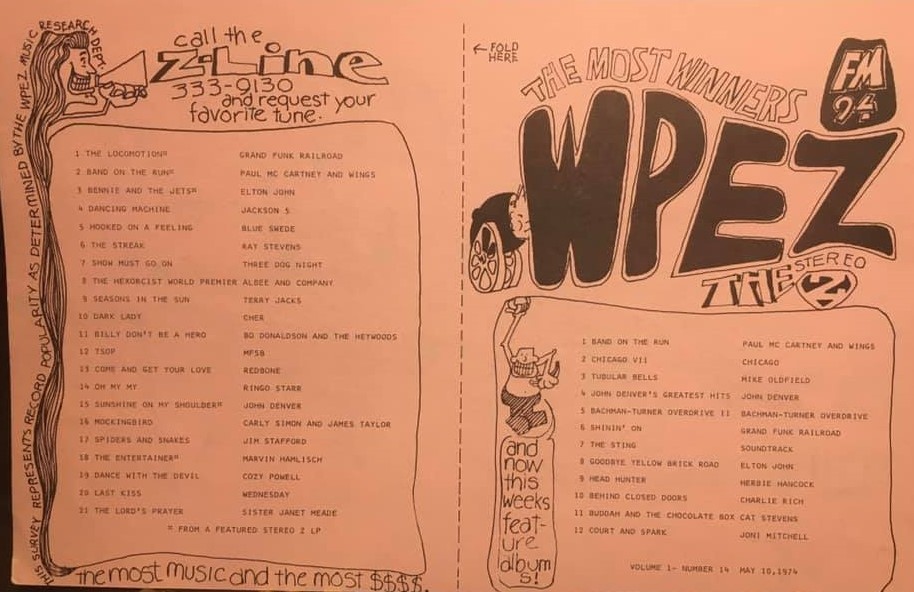 THIS SURVEY REPRESENTS RECORD POPULARITY AS DETERMINED BY THE WPEZ MUSIC RESEARCH DEPT.
call the
Z-Line
333-9130
and request your
favorite tune.
1 THE LOCOMOTION¤ GRAND FUNK RAILROAD
2 BAND ON THE RUN¤ PAUL MC CARTNEY AND WINGS
3 BENNIE AND THE JETS¤ ELTON JOHN
4 DANCING MACHINE JACKSON 5
5 HOOKED ON A FEELING BLUE SWEDE
6 THE STREAK RAY STEVENS
7 SHOW MUST GO ON THREE DOG NIGHT
8 THE HEXORCIST WORLD PREMIER ALBEE AND COMPANY
9 SEASONS IN THE SUN TERRY JACKS
10 DARK LADY CHER
11 BILLY DON'T BE A HERO BO DONALDSON AND THE HEYWOODS
12 TSOP MFSB
13 COME AND GET YOUR LOVE REDBONE
14 OH MY MY RINGO STARR
15 SUNSHINE ON MY SHOULDER¤ JOHN DENVER
16 MOCKINGBIRD CARLY SIMON AND JAMES TAYLOR
17 SPIDERS AND SNAKES JIM STAFFORD
18 THE ENTERTAINER¤ MARVIN HAMLISCH
19 DANCE WITH THE DEVIL COZY POWELL
20 LAST KISS WEDNESDAY
21 THE LORD'S PRAYER SISTER JANET MEADE
¤ FROM A FEATURED STEREO Z LP
the most music and the most $$$$.
← FOLD
HERE
THE MOST WINNERS
FM
94
WPEZ
STEREO
THE Z
1 BAND ON THE RUN PAUL MC CARTNEY AND WINGS
2 CHICAGO VII CHICAGO
3 TUBULAR BELLS MIKE OLDFIELD
4 JOHN DENVER'S GREATEST HITS JOHN DENVER
5 BACHMAN-TURNER OVERDRIVE II BACHMAN-TURNER OVERDRIVE
6 SHININ' ON GRAND FUNK RAILROAD
7 THE STING SOUNDTRACK
8 GOODBYE YELLOW BRICK ROAD ELTON JOHN
9 HEAD HUNTER HERBIE HANCOCK
10 BEHIND CLOSED DOORS CHARLIE RICH
11 BUDDAH AND THE CHOCOLATE BOX CAT STEVENS
12 COURT AND SPARK JONI MITCHELL
and
now
this
weeks
feat-
ure
album
s!
VOLUME 1- NUMBER 14 MAY 10,1974